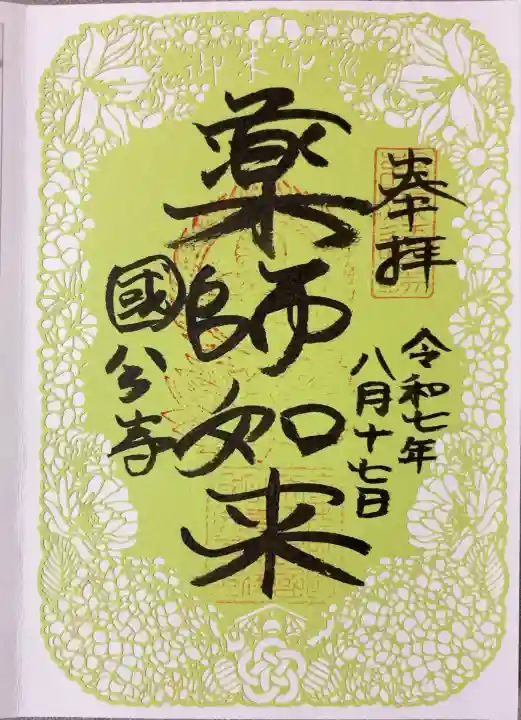 奉拝
令和七年
八月十七日
薬師如来
國分寺